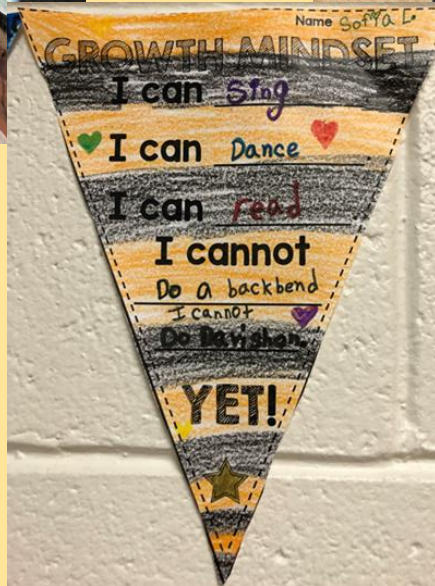 Name Sofya L.
GROWTH MINDSET
I can Sing
I can Dance
I can read
I cannot
Do a backbend
I cannot
Do Davishon.
YET!